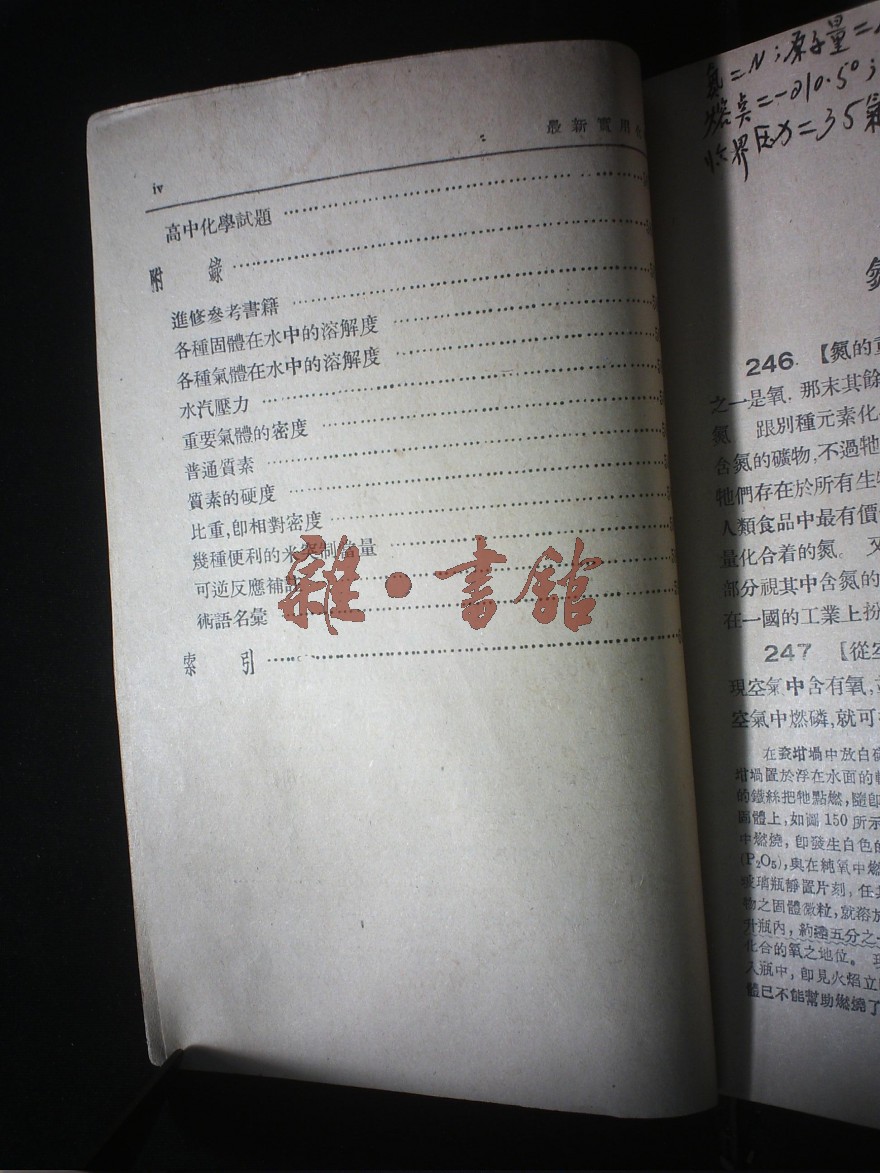 最新實用
iv
高中化學試題
附 錄
進修參考書籍
各種固體在水中的溶解度
各種氣體在水中的溶解度
水汽壓力
重要氣體的密度
普通質素
質素的硬度
比重,卽相對密度
幾種便利的米突制當量
可逆反應補註
術語名彙
索 引
雜·書館
氮=N;原子量=
熔点=-210.5°;
临界压力=35氣
246. 【氮的重
之一是氧. 那末其餘
氮 跟別種元素化
含氮的礦物,不過牠
牠們存在於所有生
人類食品中最有價
量化合着的氮。 又
部分視其中含氮的
在一國的工業上扮
247 【從空
現空氣中含有氧,
空氣中燃磷,就可
在瓷坩堝中放白磷
坩堝置於浮在水面的
的鐵絲把牠點燃,隨卽
固體上,如圖 150 所示
中燃燒,卽發生白色的
(P₂O₅),與在純氧中燃
玻璃瓶靜置片刻,任其
物之固體微粒,就溶於
升瓶內,約達五分之一
化合的氧之地位。 現
入瓶中,卽見火焰立
體已不能幫助燃燒了